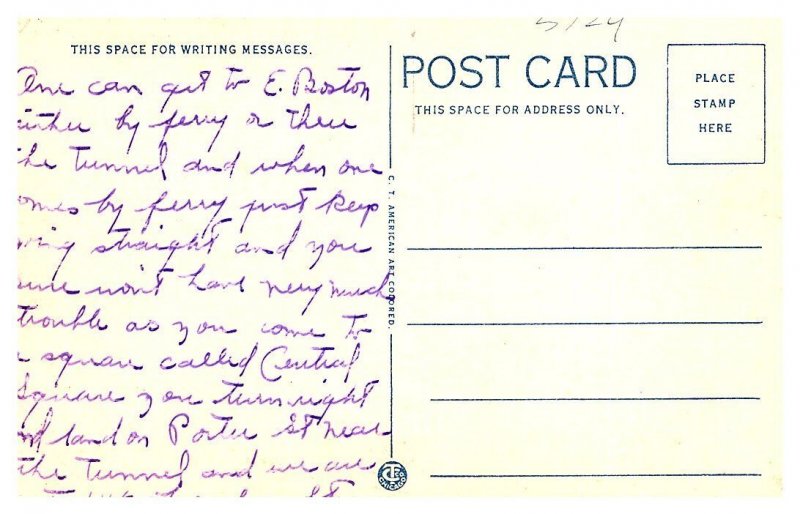 5124
THIS SPACE FOR WRITING MESSAGES.
One can get to E. Boston
either by ferry or thru
the tunnel and when one
comes by ferry just keep
going straight and you
sure won't have very much
trouble as you come to
a square called Central
Square you turn right
and land on Porter St near
the tunnel and we are
POST CARD
THIS SPACE FOR ADDRESS ONLY.
PLACE
STAMP
HERE
C. T. AMERICAN ART COLORED.
CHICAGO